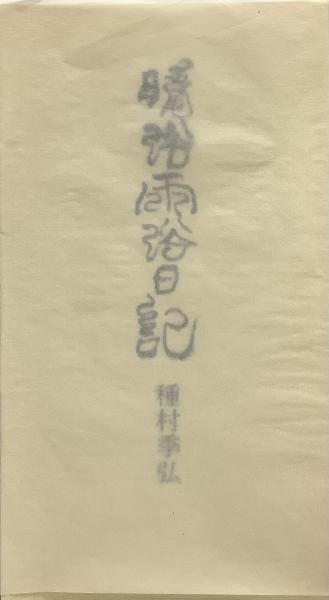 晴浴雨浴日記
種村季弘